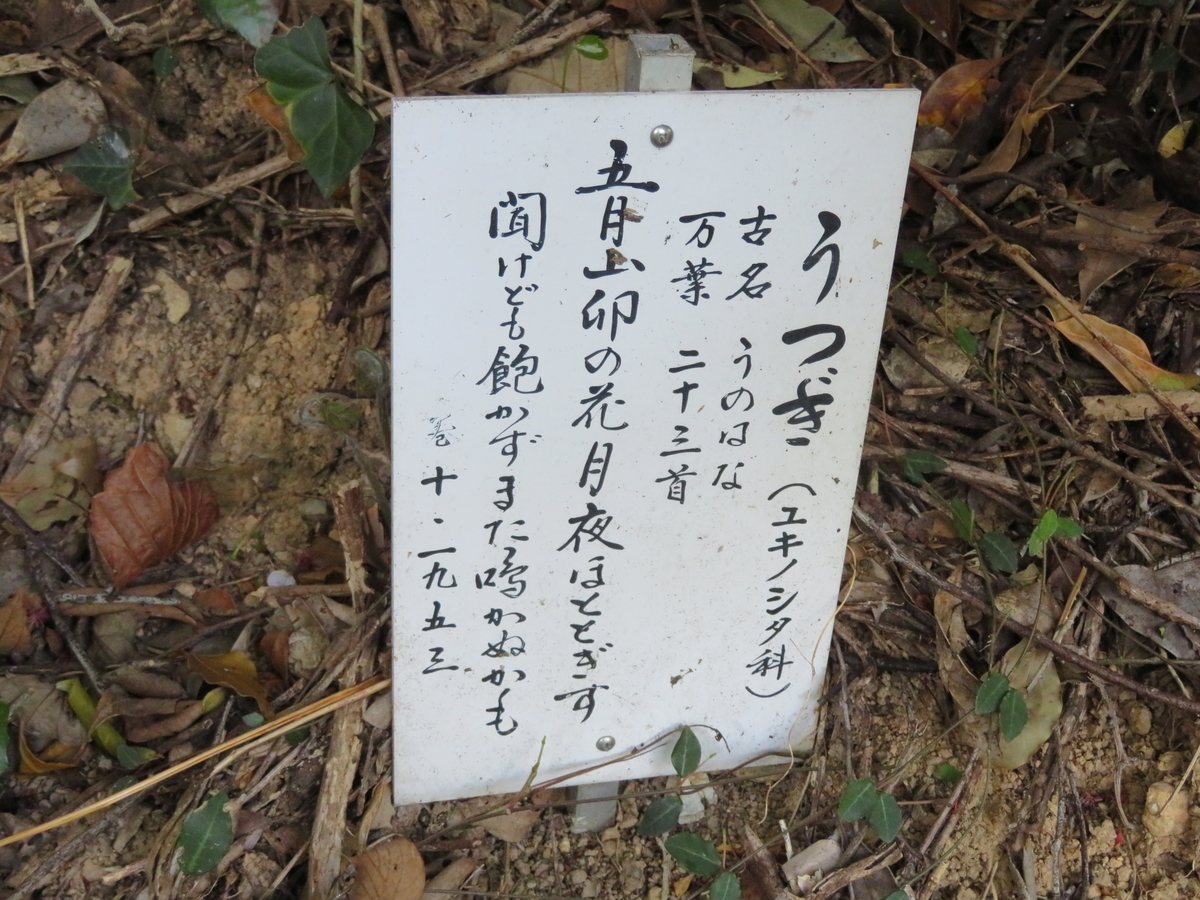 うつぎ（ユキノシタ科）
古名 うのはな
万葉 二十三首
五月山卯の花月夜ほとゝぎす
聞けども飽かずまた鳴かぬかも
巻十・一九五三